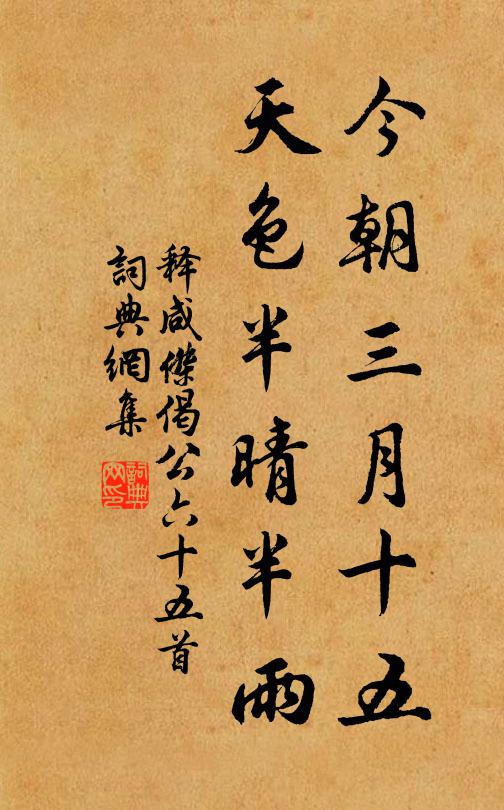 今朝三月十五
天色半晴半雨
释咸傑偈公六十五首
詞典網集
詞典網印